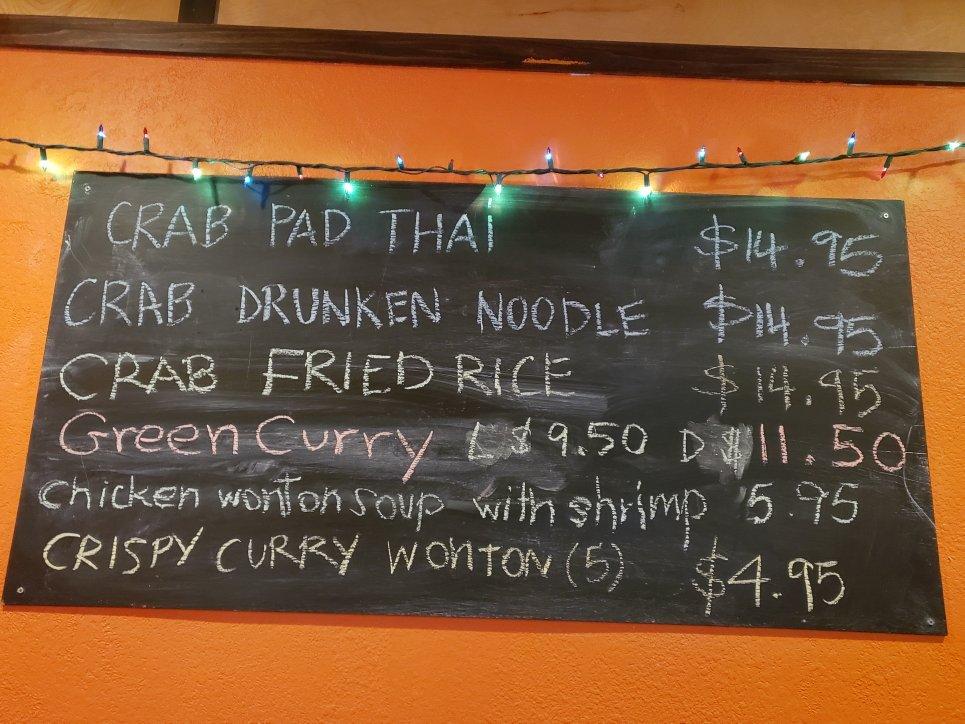 CRAB PAD THAi $14.95
CRAB DRUNKEN NOODLE $14.95
CRAB FRIED RICE $14.95
Green Curry L $9.50 D $11.50
chicken wonton soup with shrimp 5.95
CRISPY CURRY WONTON (5) $4.95